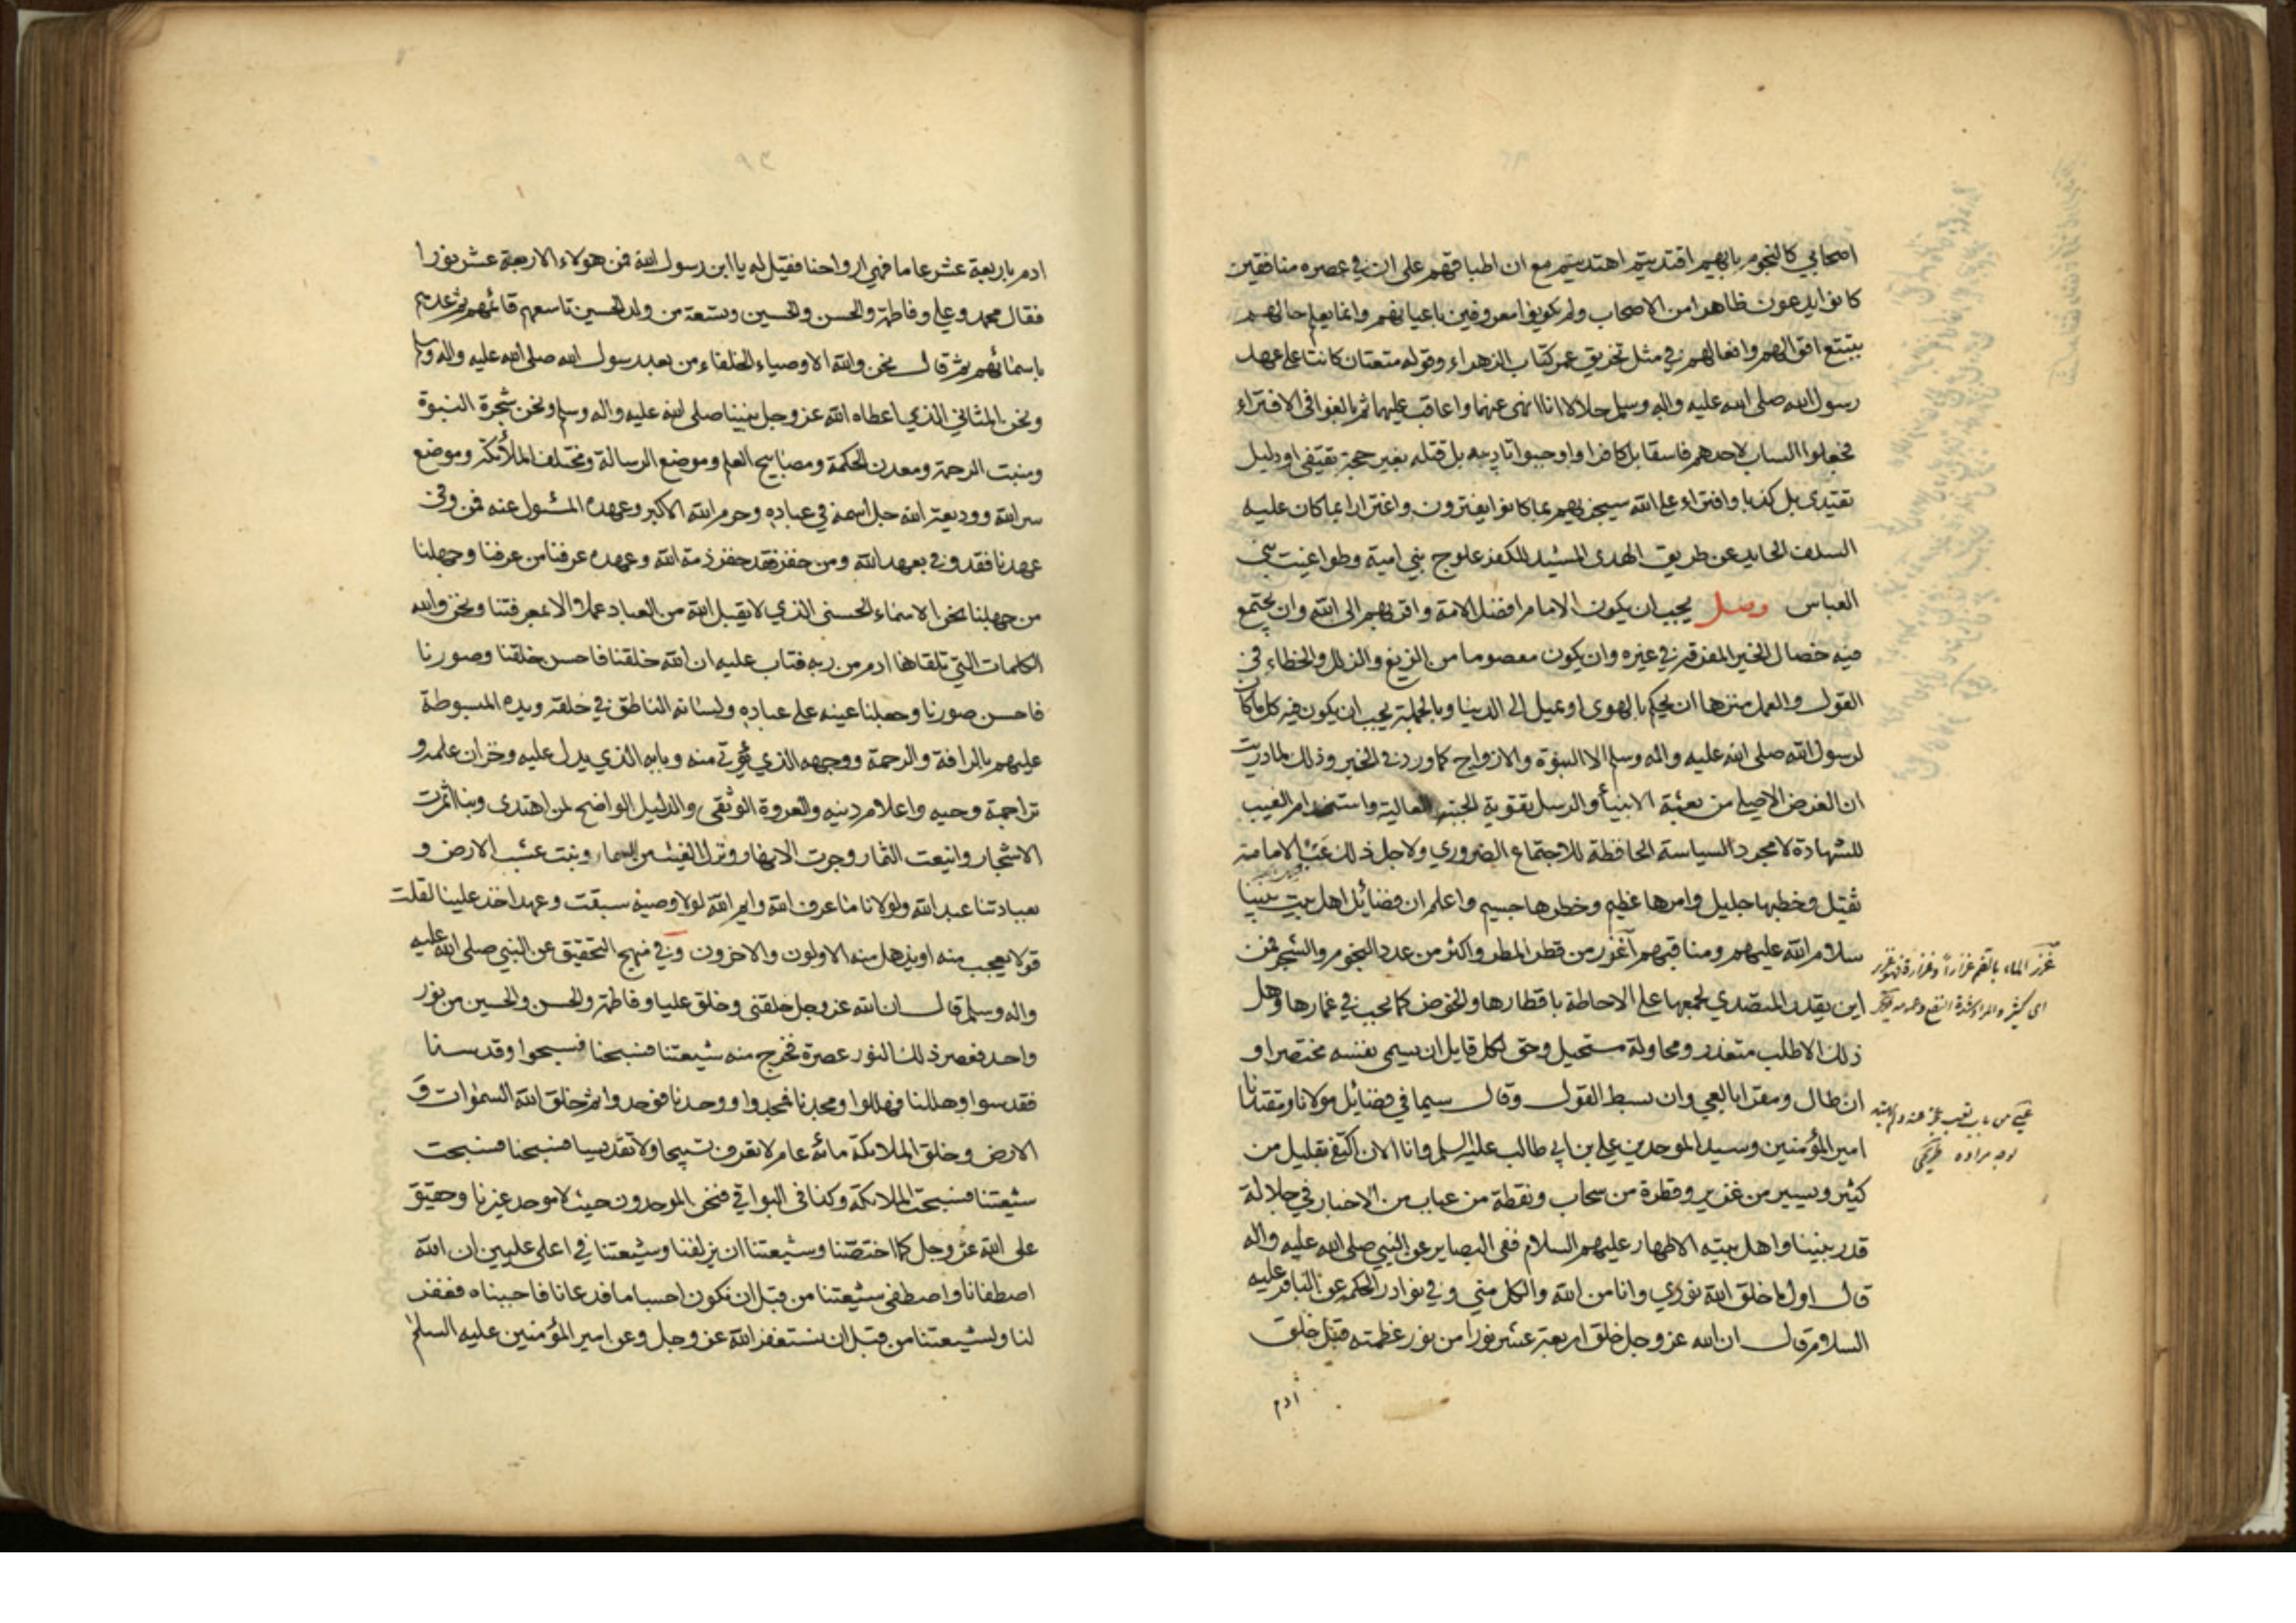 اصحابي كالنجوم بايهم اقتديتم اهتديتم مع ان اطباقهم على ان في عصره منافقين
كانوا يدعون ظاهرا من الاصحاب ولم يكونوا معروفين باعيانهم وانما يعلم حالهم
بتتبع اقوالهم وافعالهم في مثل تخريق عمر كتاب الزهراء وقوله متعتان كانتا على عهد
رسول الله صلى الله عليه واله وسلم حلالا انا انهى عنهما واعاقب عليهما ثم بالغوا في الافتراء
فجعلوا الساب لاحدهم فاسقا بل كافرا واوجبوا تاديبه بل قتله بغير حجة تقتفى او دليل
تقتدى بل كذبا وافتراء على الله سيجزيهم بما كانوا يفترون واغترارا بما كان عليه
السلف الحايد عن طريق الهدى المشيد للكفر علوج بني امية وطواغيت بني
العباس وصل يجب ان يكون الامام افضل الامة واقربهم الى الله وان يجتمع
فيه خصال الخير المفرقة في غيره وان يكون معصوما من الزيغ والزلل والخطاء في
القول والعمل منزها ان يحكم بالهوى او يميل الى الدنيا وبالجملة يجب ان يكون فيه كل ما كان
لرسول الله صلى الله عليه واله وسلم الا النبوة والازواج كما ورد في الخبر وذلك لما دريت
ان الغرض الاصلي من بعثة الانبيأ والرسل تقوية الجنبة العالية واستخدام الغيب
للشهادة لا مجرد السياسة الحافظة للاجتماع الضروري ولاجل ذلك الامامة
ثقيل وخطبها جليل وامرها عظيم وخطرها جسيم واعلم ان فضائل اهل بيت نبينا
سلام الله عليهم ومناقبهم أغزر من قطر المطر واكثر من عدد النجوم والشجر فمن
اين يقدر المتصدي لجمعها على الاحاطة باقطارها والخوض كما يجب في غمارها وهل
ذلك الا طلب متعذر ومحاولة مستحيل وحق لكل قايل ان يسمي نفسه مختصرا و
ان طال ومقرا بالعي وان بسط القول وقال سيما في فضائل مولانا ومقتدانا
امير المؤمنين وسيد الموحدين علي بن ابي طالب عليه السلم وانا الان اكتفي بقليل من
كثير ويسير من غزير وقطرة من سحاب ونقطة من عباب من الاخبار في جلالة
قدر نبينا واهل بيته الاطهار عليهم السلام ففى البصاير عن النبي صلى الله عليه واله
قال اول ما خلق الله نوري وانا من الله والكل مني وفي نوادر الحكمة عن الباقر عليه
السلام قال ان الله عز وجل خلق اربعة عشر نورا من نور عظمته قبل خلق
أدم
غزر الماء بالضم غزارا وغزارة فهو غزير
اى كثير والمراد
٩٣
ادم باربعة عشر عاما فهي ارواحنا فقيل له يا ابن رسول الله فمن هولاء الاربعة عشر نورا
فقال محمد وعلي وفاطمة والحسن والحسين وتسعة من ولد الحسين تاسعهم قائمهم ثم عدهم
باسمائهم ثم قال نحن والله الاوصياء الخلفاء من بعد رسول الله صلى الله عليه واله وسلم
ونحن المثاني الذي اعطاه الله عز وجل نبينا صلى الله عليه واله وسلم ونحن شجرة النبوة
ومنبت الرحمة ومعدن الحكمة ومصابيح العلم وموضع الرسالة ومختلف الملأئكة وموضع
سر الله ووديعة الله جل اسمه في عباده وحرم الله الاكبر وعهده المسئول عنه فمن وفى
عهدنا فقد وفى بعهد الله ومن خفر فقد خفر ذمة الله وعهده عرفنا من عرفنا وجهلنا
من جهلنا نحن الاسماء الحسنى الذي لا يقبل الله من العباد عملا الا بمعرفتنا ونحن والله
الكلمات التي تلقاها ادم من ربه فتاب عليه ان الله خلقنا فاحسن خلقنا وصورنا
فاحسن صورنا وجعلنا عينه على عباده ولسانه الناطق في خلقه ويده المبسوطة
عليهم بالرافة والرحمة ووجهه الذي يؤتى منه وبابه الذي يدل عليه وخزان علمه و
تراجمة وحيه واعلام دينه والعروة الوثقى والدليل الواضح لمن اهتدى وبنا اثمرت
الاشجار وانيعت الثمار وجرت الانهار ونزل الغيث من السماء ونبت عشب الارض و
بعبادتنا عبد الله ولولانا ما عرف الله وايم الله لولا وصية سبقت وعهد اخذ علينا لقلت
قولا يعجب منه او يذهل منه الاولون والاخرون وفي منهج التحقيق عن النبي صلى الله عليه
واله وسلم قال ان الله عز وجل خلقني وخلق عليا وفاطمة والحسن والحسين من نور
واحد فعصر ذلك النور عصرة فخرج منه شيعتنا فسبحنا فسبحوا وقدسنا
فقدسوا وهللنا فهللوا ومجدنا فمجدوا ووحدنا فوحدوا ثم خلق الله السموات و
الارض وخلق الملائكة مائة عام لا تعرف تسبيحا ولا تقديسا فسبحنا فسبحت
شيعتنا فسبحت الملائكة وكذا في البواقي فنحن الموحدون حيث لا موحد غيرنا وحقيق
على الله عز وجل كما اختصنا وشيعتنا ان يزلفنا وشيعتنا في اعلى عليين ان الله
اصطفانا واصطفى شيعتنا من قبل ان نكون اجساما فدعانا فاجبناه فغفر
لنا ولشيعتنا من قبل ان نستغفر الله عز وجل وعن امير المؤمنين عليه السلم